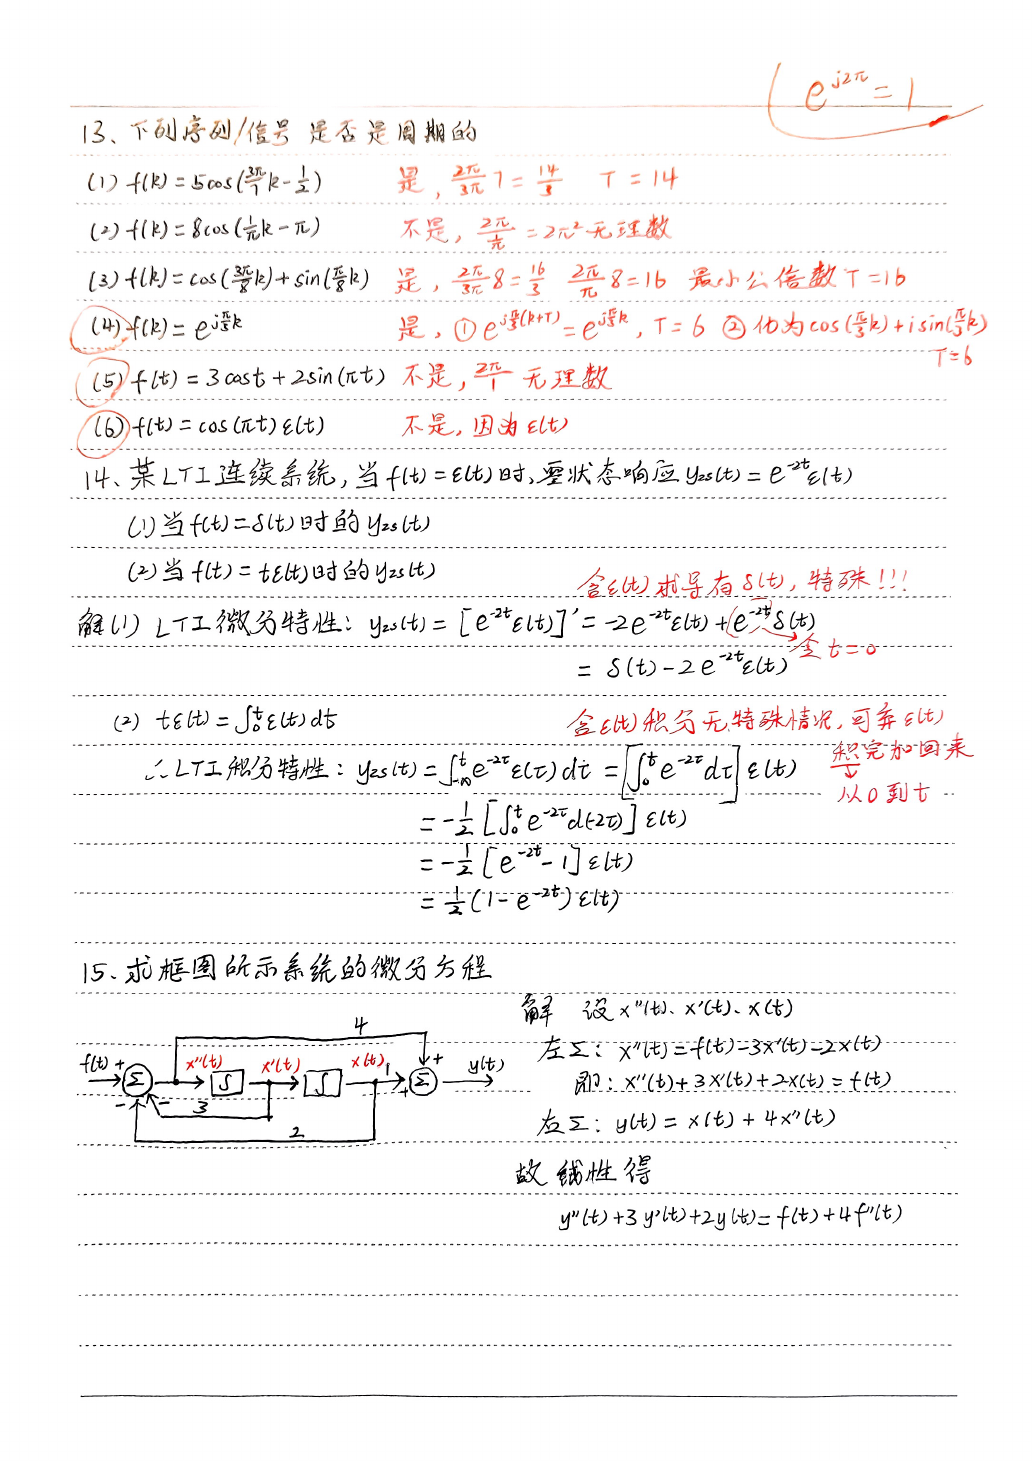 e^{j2π} = 1
13、下列序列/信号 是否是周期的
(1) f(k) = 5cos(3π/7 k - 1/2) 是, 2π/3π 7 = 14/3 T = 14
(2) f(k) = 8cos(1/π k - π) 不是, 2π/(1/π) = 2π² 无理数
(3) f(k) = cos(3π/8 k) + sin(π/8 k) 是, 2π/3π 8 = 16/3 2π/π 8 = 16 最小公倍数 T = 16
(4) f(k) = e^{jπ/3 k} 是, ① e^{jπ/3(k+T)} = e^{jπ/3 k}, T = 6 ② 化为 cos(π/3 k) + i sin(π/3 k)
T = 6
(5) f(t) = 3cost + 2sin(πt) 不是, 2π/1 无理数
(6) f(t) = cos(πt)ε(t) 不是, 因为 ε(t)
14、某LTI连续系统, 当 f(t) = ε(t) 时, 零状态响应 yzs(t) = e^{-2t}ε(t)
(1) 当 f(t) = δ(t) 时的 yzs(t)
(2) 当 f(t) = tε(t) 时的 yzs(t)
含ε(t)求导有δ(t), 特殊!!!
解(1) LTI 微分特性: yzs(t) = [e^{-2t}ε(t)]' = -2e^{-2t}ε(t) + e^{-2t}δ(t)
令 t = 0
= δ(t) - 2e^{-2t}ε(t)
(2) tε(t) = ∫₀ᵗ ε(t)dt 含ε(t)积分无特殊情况, 可弃ε(t)
积完加回来
∴ LTI 积分特性: yzs(t) = ∫_{-∞}^{t} e^{-2τ}ε(τ)dτ = [∫₀ᵗ e^{-2τ}dτ]ε(t)
从0到t
= -1/2 [∫₀ᵗ e^{-2τ}d(-2τ)]ε(t)
= -1/2 [e^{-2t} - 1]ε(t)
= 1/2 (1 - e^{-2t})ε(t)
15、求框图所示系统的微分方程
解 设 x''(t)、x'(t)、x(t)
4
左Σ: x''(t) = f(t) - 3x'(t) - 2x(t)
f(t) + Σ x''(t) ∫ x'(t) ∫ x(t) 1 + + Σ y(t)
即: x''(t) + 3x'(t) + 2x(t) = f(t)
- - 3
2
右Σ: y(t) = x(t) + 4x''(t)
故 线性得
y''(t) + 3y'(t) + 2y(t) = f(t) + 4f''(t)